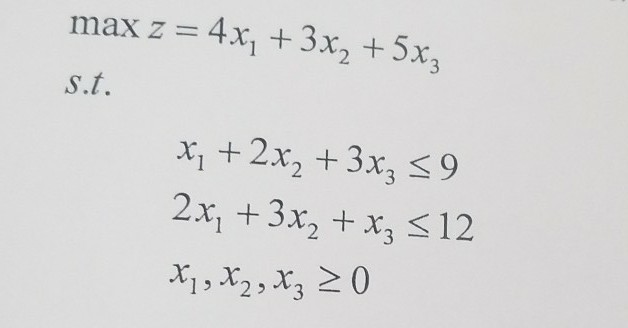 max z = 4x₁ + 3x₂ + 5x₃
s.t.
x₁ + 2x₂ + 3x₃ ≤ 9
2x₁ + 3x₂ + x₃ ≤ 12
x₁, x₂, x₃ ≥ 0